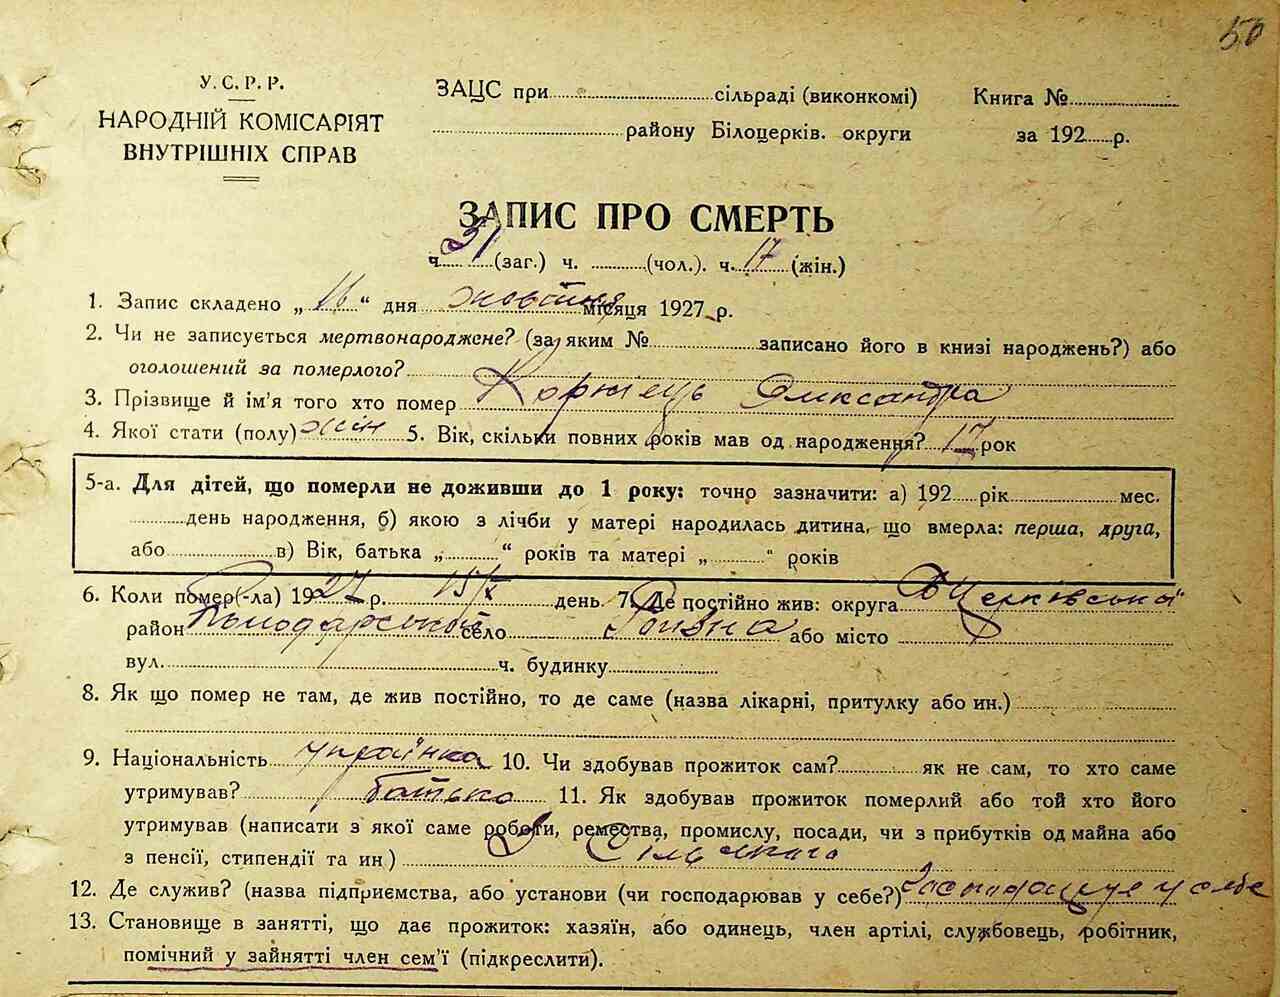 50
У. С. Р. Р.
НАРОДНІЙ КОМІСАРІЯТ
ВНУТРІШНІХ СПРАВ
ЗАЦС при сільраді (виконкомі)
району Білоцерків. округи
Книга №
за 192 р.
ЗАПИС ПРО СМЕРТЬ
ч. 31 (заг.) ч. (чол.). ч. 17 (жін.)
1. Запис складено „ 16 “ дня жовтня місяця 1927 р.
2. Чи не записується мертвонароджене? (за яким № записано його в книзі народжень?) або
оголошений за померлого?
3. Прізвище й ім'я того хто помер Коржець Олександра
4. Якої стати (полу) жін 5. Вік, скільки повних років мав од народження? 17 рок
5-а. Для дітей, що померли не доживши до 1 року: точно зазначити: а) 192 рік мес.
день народження, б) якою з лічби у матері народилась дитина, що вмерла: перша, друга,
або в) Вік, батька „ “ років та матері „ “ років
6. Коли помер(-ла) 1927 р. 15/X день. 7. Де постійно жив: округа Б Церківська
район Володарський село Рогізна або місто
вул. ч. будинку
8. Як що помер не там, де жив постійно, то де саме (назва лікарні, притулку або ин.)
9. Національність українка 10. Чи здобував прожиток сам? як не сам, то хто саме
утримував? батько 11. Як здобував прожиток померлий або той хто його
утримував (написати з якої саме роботи, ремества, промислу, посади, чи з прибутків од майна або
з пенсії, стипендії та ин)
12. Де служив? (назва підприємства, або установи (чи господарював у себе?) Господарює у себе
13. Становище в занятті, що дає прожиток: хазяїн, або одинець, член артілі, службовець, робітник,
помічний у зайнятті член сем'ї (підкреслити).